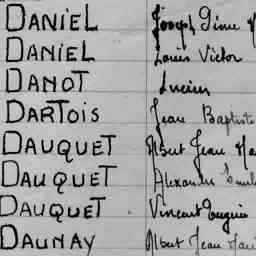 DANIEL Joseph Dieu
DANIEL Louis Victor
DANOT Lucien
DARTOIS Jean Baptiste
DAUQUET Albert Jean
DAUQUET Alexandre
DAUQUET Vincent Eugène
DAUNAY Albert Jean